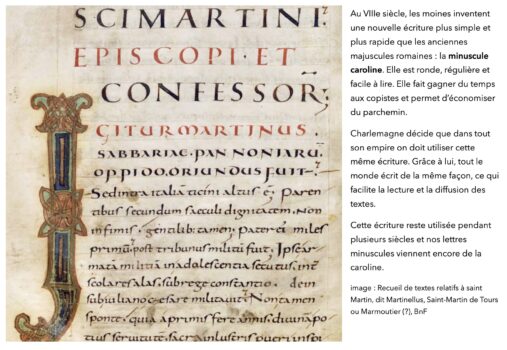 SCIMARTINI·
EPISCOPI·ET
CONFESSOR;
IGITURMARTINUS·
SABBARIAE·PANNONIARU·
OPPIDO·ORIUNDUSFUIT·
Sedintra italia ticini altus ē; Paren
tibus secundum saeculi dignitatem. Non
infimis, gentilib; tamen; pater ei miles
primū, post tribunus militū fuit; Ipse ar
matā militiā inadolescentia secutus, int
scolares alas, subrege constantio, dein
subiuliano cesare militauit; Nontamen
sponte quia aprimis fere annis, diuinā po
tius seruitutē
Au VIIIe siècle, les moines inventent
une nouvelle écriture plus simple et
plus rapide que les anciennes
majuscules romaines : la minuscule
caroline. Elle est ronde, régulière et
facile à lire. Elle fait gagner du temps
aux copistes et permet d'économiser
du parchemin.
Charlemagne décide que dans tout
son empire on doit utiliser cette
même écriture. Grâce à lui, tout le
monde écrit de la même façon, ce qui
facilite la lecture et la diffusion des
textes.
Cette écriture reste utilisée pendant
plusieurs siècles et nos lettres
minuscules viennent encore de la
caroline.
image : Recueil de textes relatifs à saint
Martin, dit Martinellus, Saint-Martin de Tours
ou Marmoutier (?), BnF